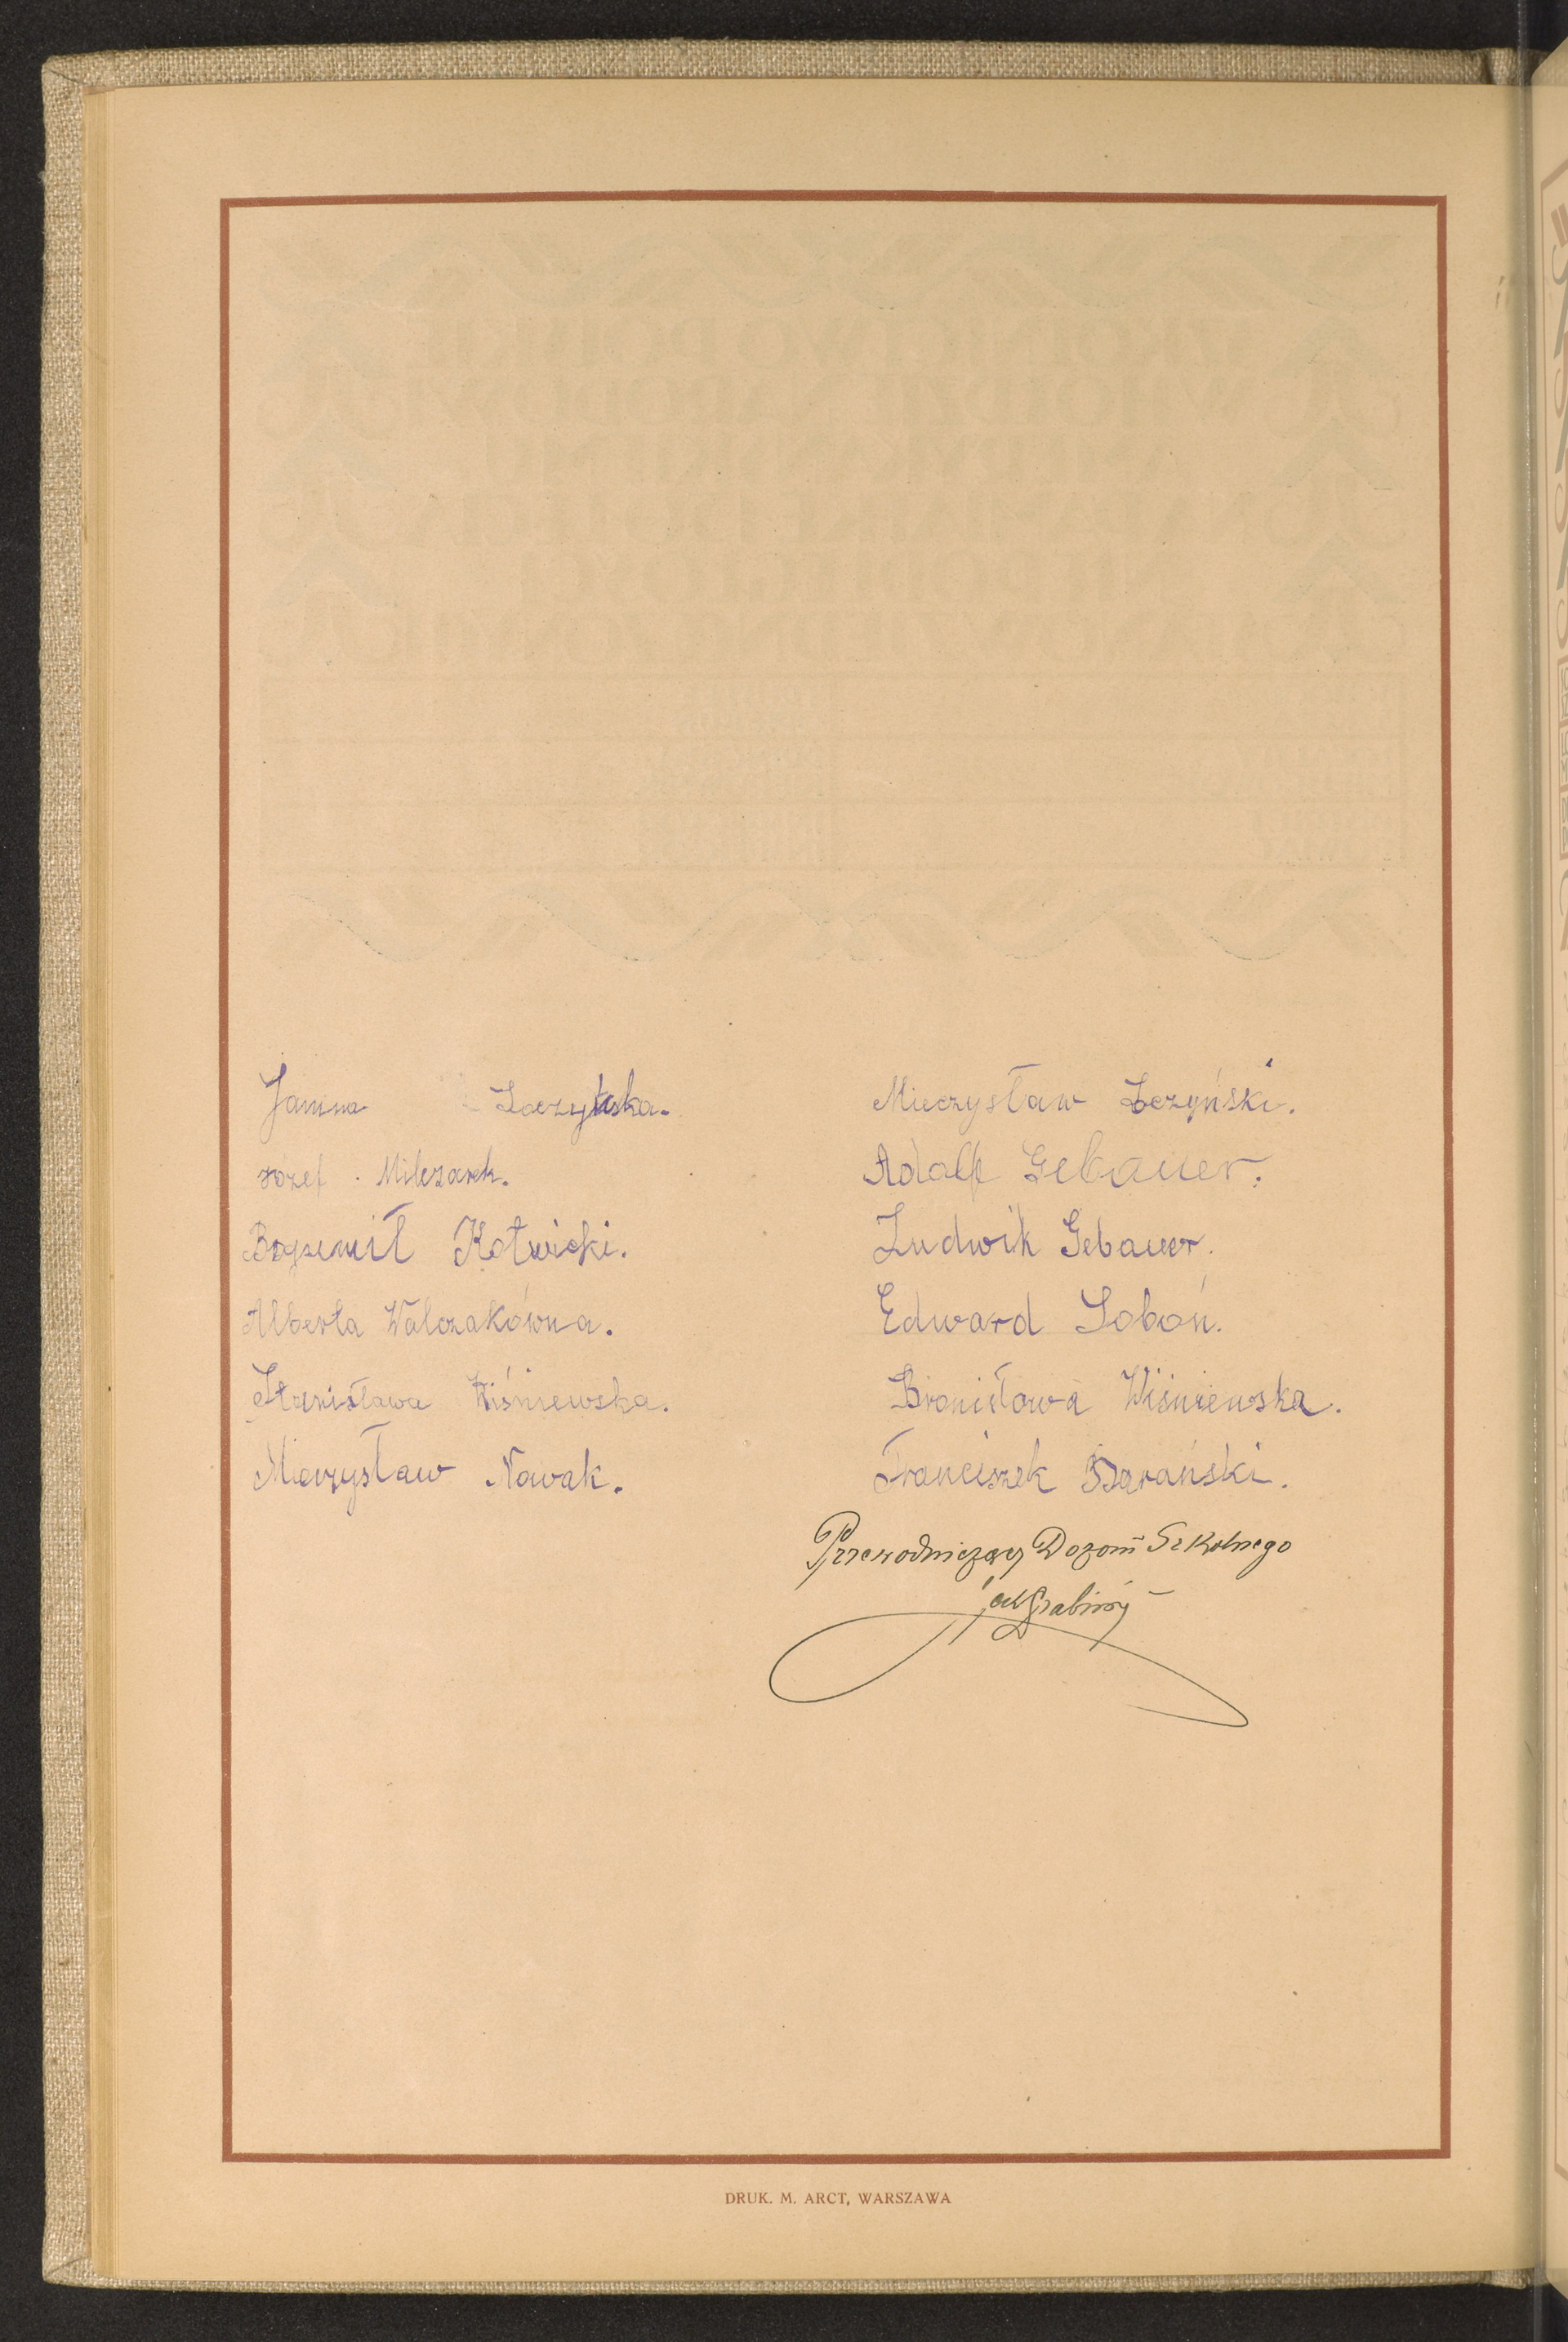 Janina Łoczyńska.
Józef Milczarek.
Bogumił Kotwicki.
Alberta Walczakówna.
Stanisława Wiśniewska.
Mieczysław Nowak.
Mieczysław Łczyński.
Adolf Gebauer.
Ludwik Gebauer.
Edward Soboń.
Bronisława Wiśniewska.
Franciszek Barański.
Przewodniczący Dozoru Szkolnego
DRUK. M. ARCT, WARSZAWA